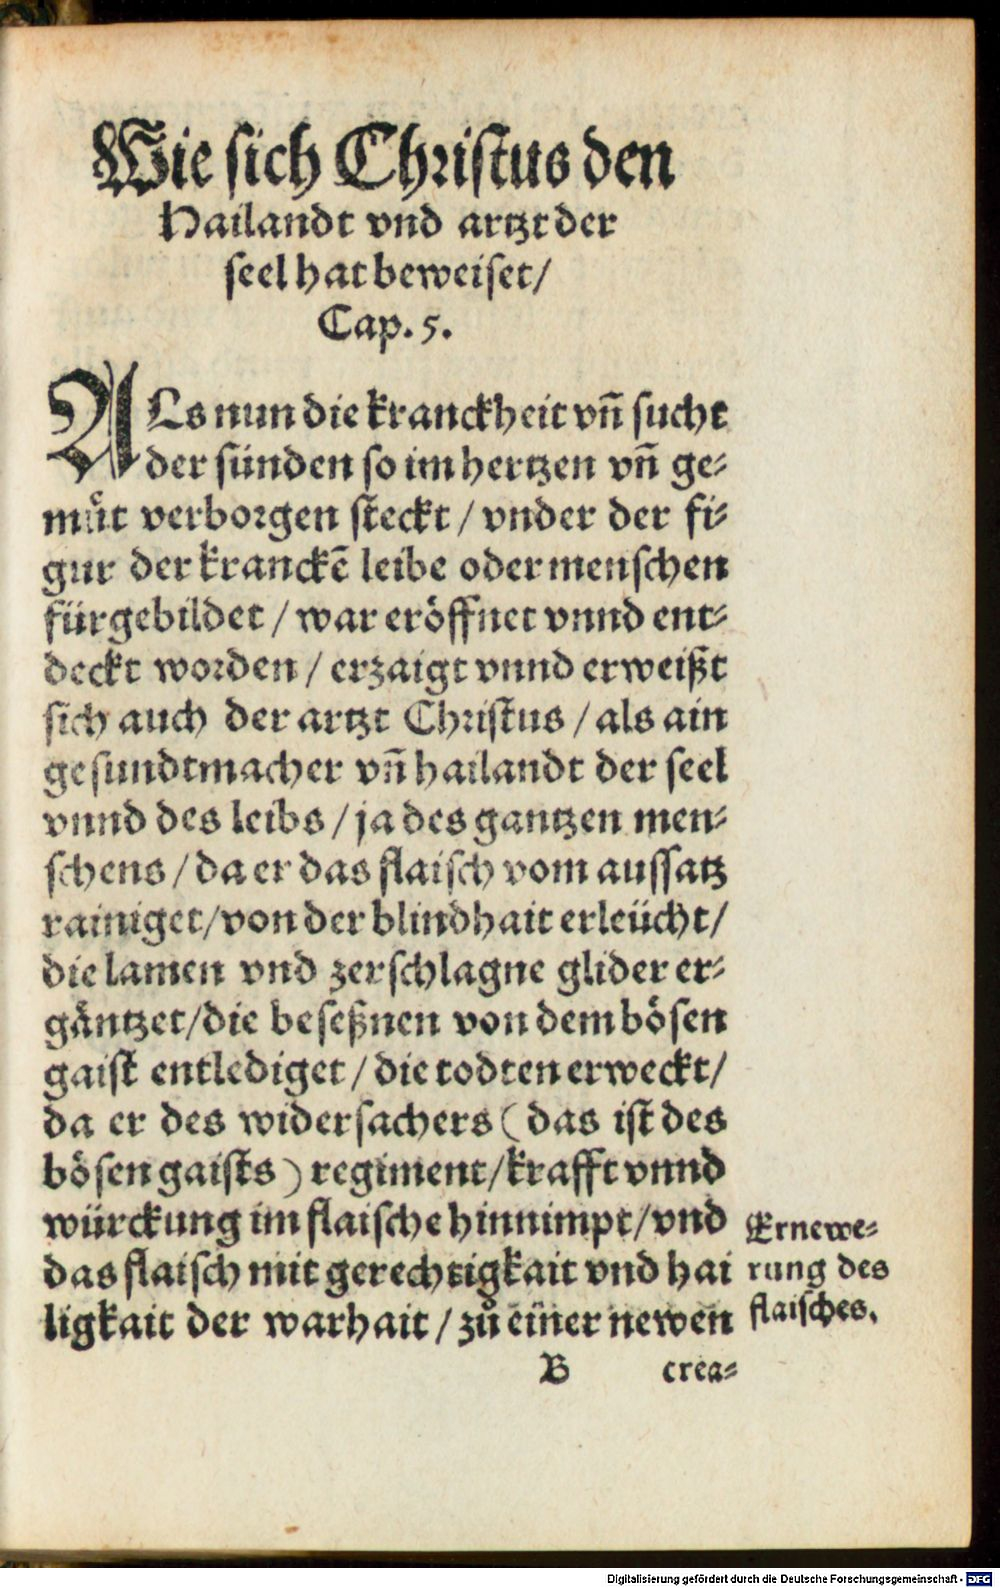 Wie sich Christus den
Hailandt vnd artzt der
seel hat beweiset/
Cap. 5.
ALs nun die kranckheit vn̄ sucht
der sünden so im hertzen vn̄ ge⸗
muͤt verborgen steckt / vnder der fi⸗
gur der kranckē leibe oder menschen
fürgebildet / war eröffnet vnnd ent⸗
deckt worden / erzaigt vnnd erweißt
sich auch der artzt Christus / als ain
gesundtmacher vn̄ hailandt der seel
vnnd des leibs / ja des gantzen men⸗
schens / da er das flaisch vom aussatz
rainiget/von der blindhait erleücht/
die lamen vnd zerschlagne glider er⸗
gäntzet/die beseßnen von dem bösen
gaist entlediget / die todten erweckt/
da er des widersachers (das ist des
bösen gaists) regiment/krafft vnnd
würckung im flaische hinnimpt/vnd
das flaisch mit gerechtigkait vnd hai
ligkait der warhait / zů einer newen
Ernewe⸗
rung des
flaisches.
B crea⸗
Digitalisierung gefördert durch die Deutsche Forschungsgemeinschaft - DFG